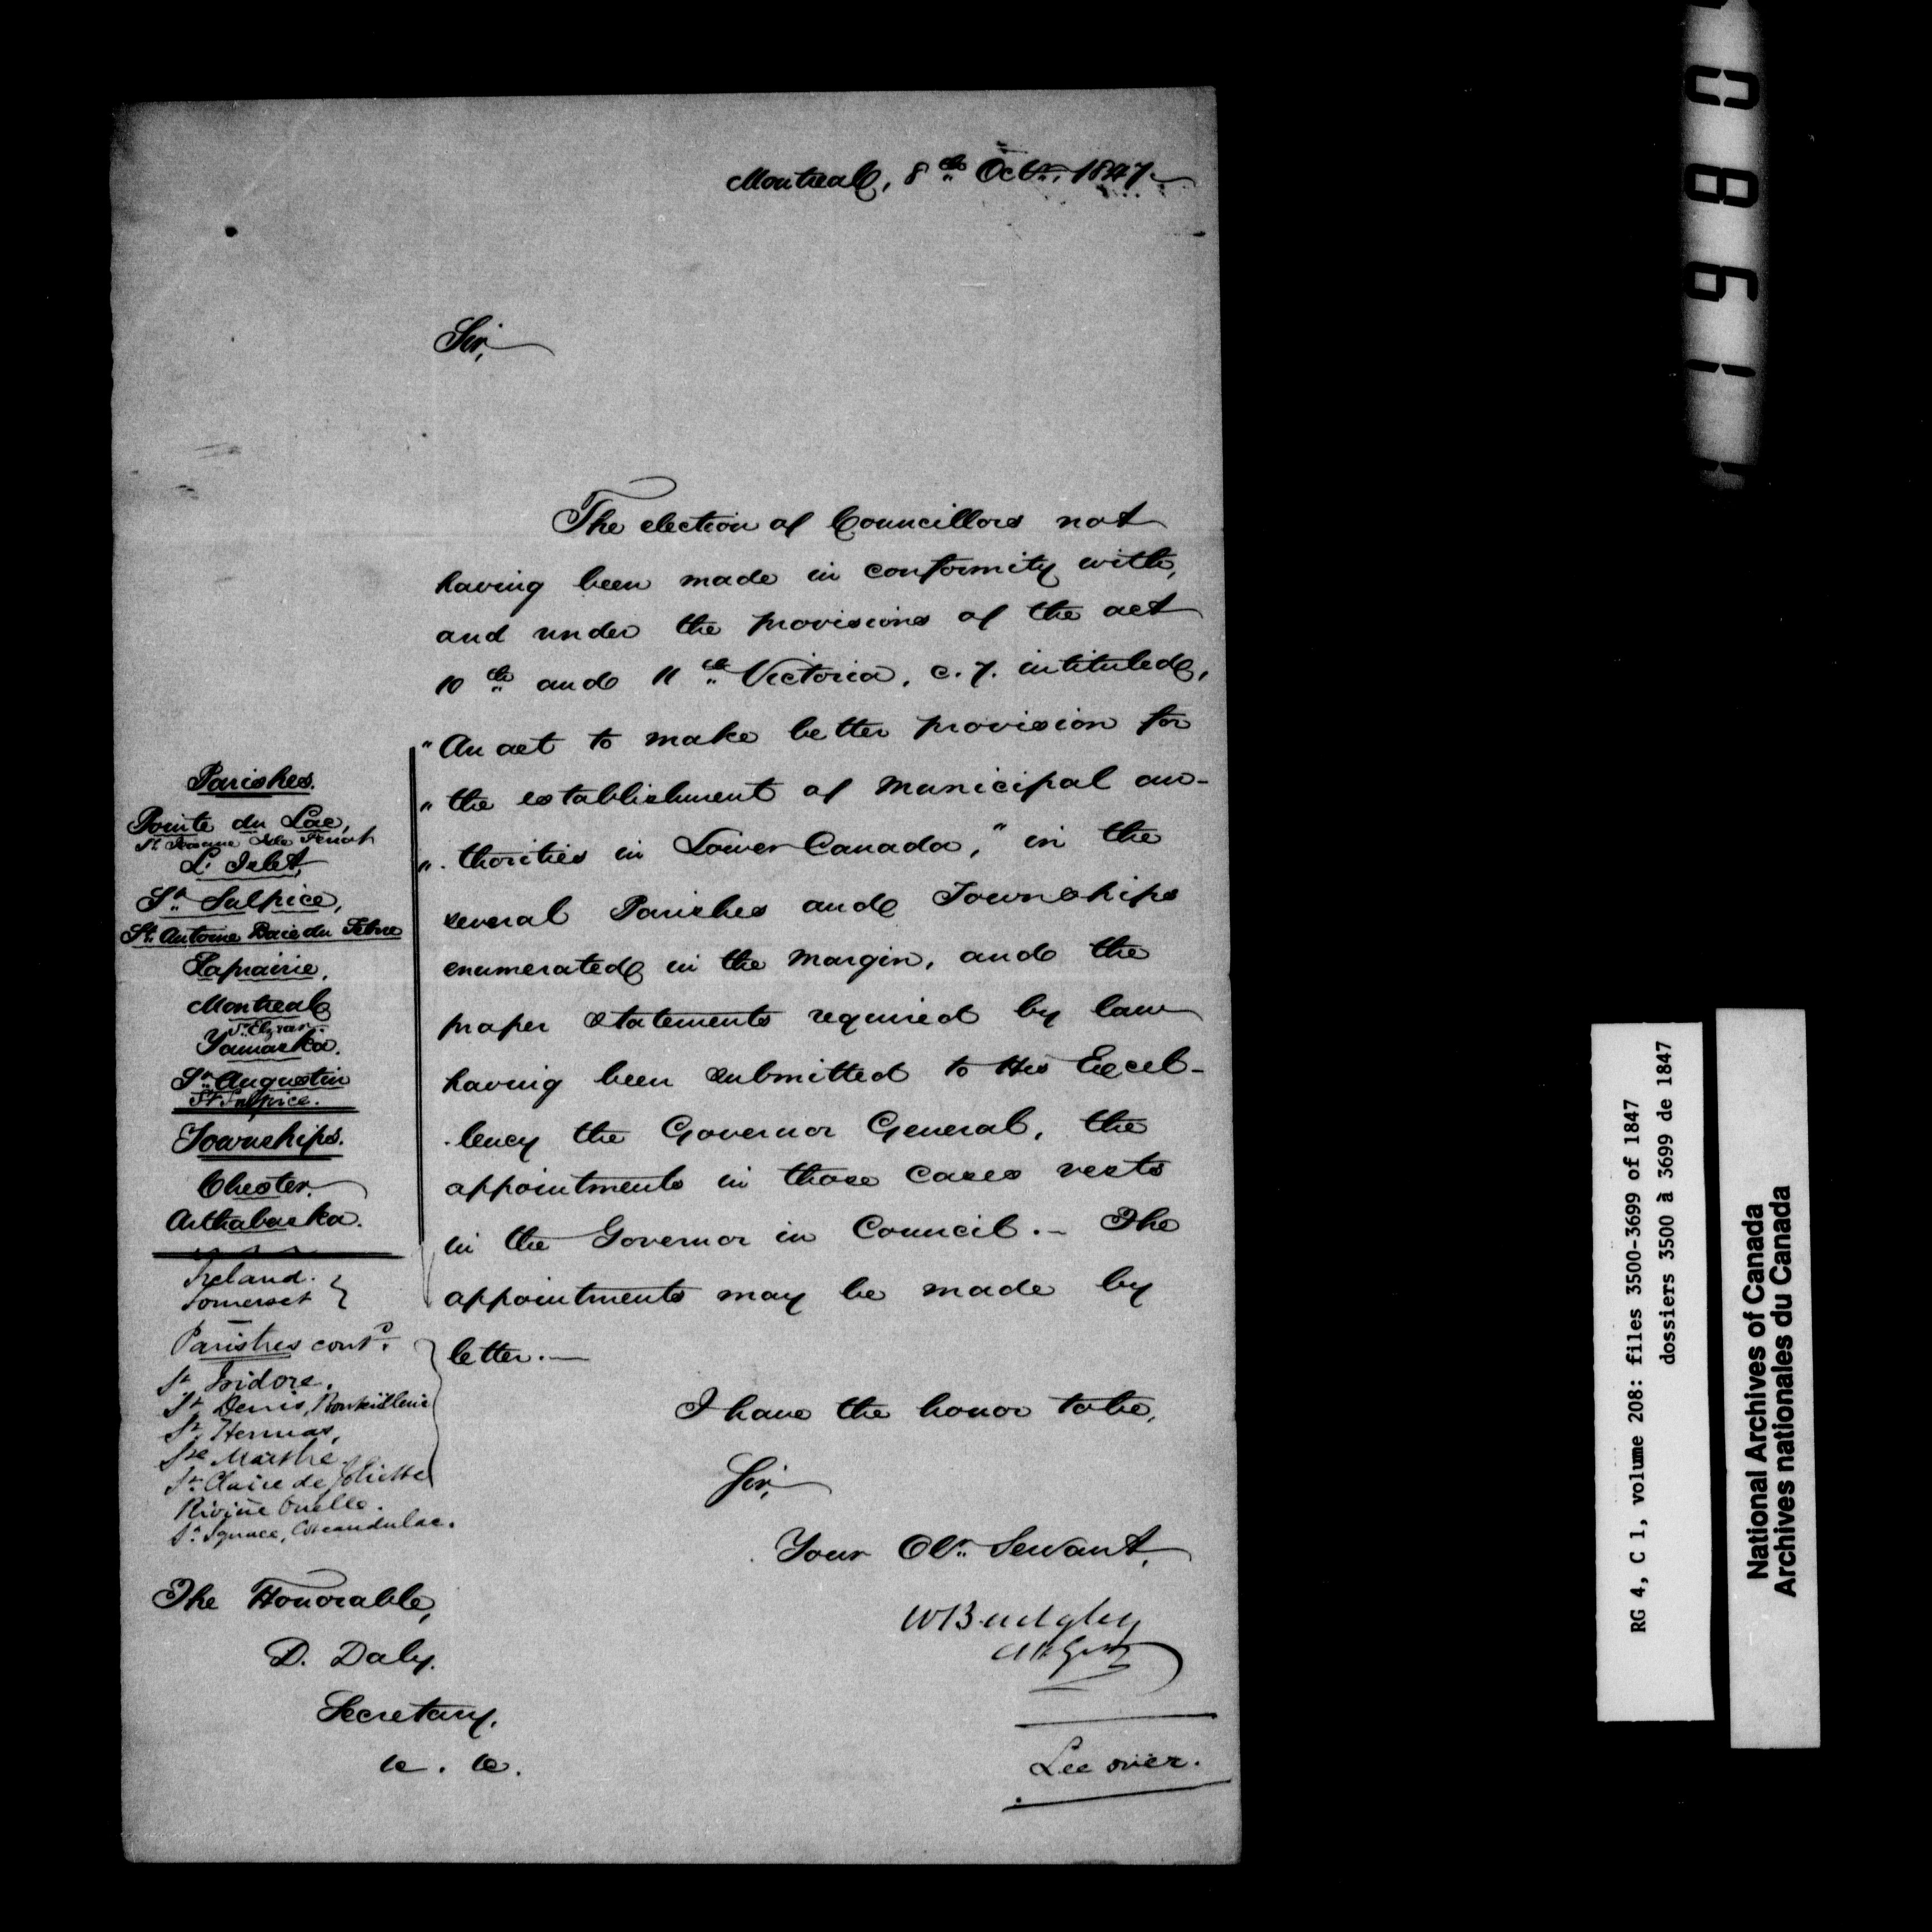 Montreal, 8th Octr. 1847.
Sir,
The election of Councillors not
having been made in conformity with,
and under the provisions of the act
10th and 11th Victoria, c. 7. intituled,
"An act to make better provision for
"the establishment of Municipal au-
"thorities in Lower Canada," in the
several Parishes and Townships
enumerated in the margin, and the
proper statements required by law
having been submitted to His Excel-
lency the Governor General, the
appointments in those cases vests
in the Governor in Council.- The
appointments may be made by
letter.-
I have the honor to be,
Sir,
Your Obt. Servant,
W Badgley
Att Genl
See over.
Parishes.
Pointe du Lac,
Isle Perrot
L'Islet,
St. Sulpice,
St. Antoine Baie du Febvre
Laprairie,
Montreal
Yamaska.
St. Augustin
St Sulpice.
Townships.
Chester.
Arthabaska.
Ireland.
Somerset
Parishes contd.
St Isidore.
St Denis,
St Hermas,
Ste Marthe.
St. Claire de Joliette
Rivière Ouelle.
St. Ignace, Coteau du lac.
The Honorable,
D. Daly.
Secretary.
&. &.
0861
RG 4, C 1, volume 208: files 3500-3699 of 1847
dossiers 3500 à 3699 de 1847
National Archives of Canada
Archives nationales du Canada